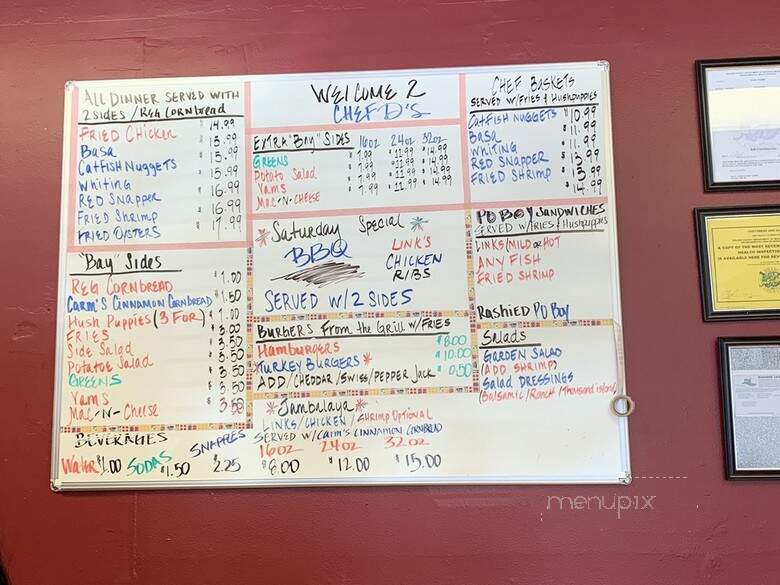 ALL DINNER SERVED WITH
2 SIDES / REG CORNbREAD
FRIED CHICKEN 14.99
BASA 15.99
CATFISH NUGGETS 15.99
WHITING 15.99
RED SNAPPER 16.99
FRIED SHRIMP 16.99
FRIED OYSTERS 17.99
"BAY" SIDES
REG CORNBREAD $1.00
CARM'S CINNAMON CORNBREAD $1.50
HUSH PUPPIES (3 FOR) $1.00
FRIES
SIDE SALAD
POTATOE SALAD 3.50
GREENS 3.50
YAMS 3.50
MAC-N-CHEESE 3.50
BEVERAGES
WATER $1.00 SODAS $1.50 SNAPPLES 2.25
WELCOME 2
CHEF D'S
EXTRA "BAY" SIDES 16oz 24oz 32oz
GREENS 7.99 11.99 14.99
POTATO SALAD 7.99 11.99 14.99
YAMS 7.99 11.99 14.99
MAC-N-CHEESE 7.99 11.99 14.99
*SATURDAY SPECIAL*
BBQ
LINK'S
CHICKEN
RIBS
SERVED W/2 SIDES
BURGERS FROM THE GRILL W/FRIES
HAMBURGERS $8.00
TURKEY BURGERS * $10.00
ADD/CHEDDAR/SWISS/PEPPER JACK $0.50
*JAMBALAYA*
LINKS/CHICKEN/SHRIMP OPTIONAL
SERVED W/CARM'S CINNAMON CORNBREAD
16oz 24oz 32oz
$8.00 $12.00 $15.00
CHEF BASKETS
SERVED W/FRIES & HUSHPUPPIES
CATFISH NUGGETS 10.99
BASA 11.99
WHITING 11.99
RED SNAPPER 13.99
FRIED SHRIMP 13.99
14.99
PO BOY SANDWICHES
SERVED W/FRIES & HUSHPUPPIES
LINKS/MILD OR HOT
ANY FISH
FRIED SHRIMP
RASHIED PO BOY
SALADS
GARDEN SALAD
(ADD SHRIMP)
SALAD DRESSINGS
(BALSAMIC/RANCH/THOUSAND ISLAND)
menupix